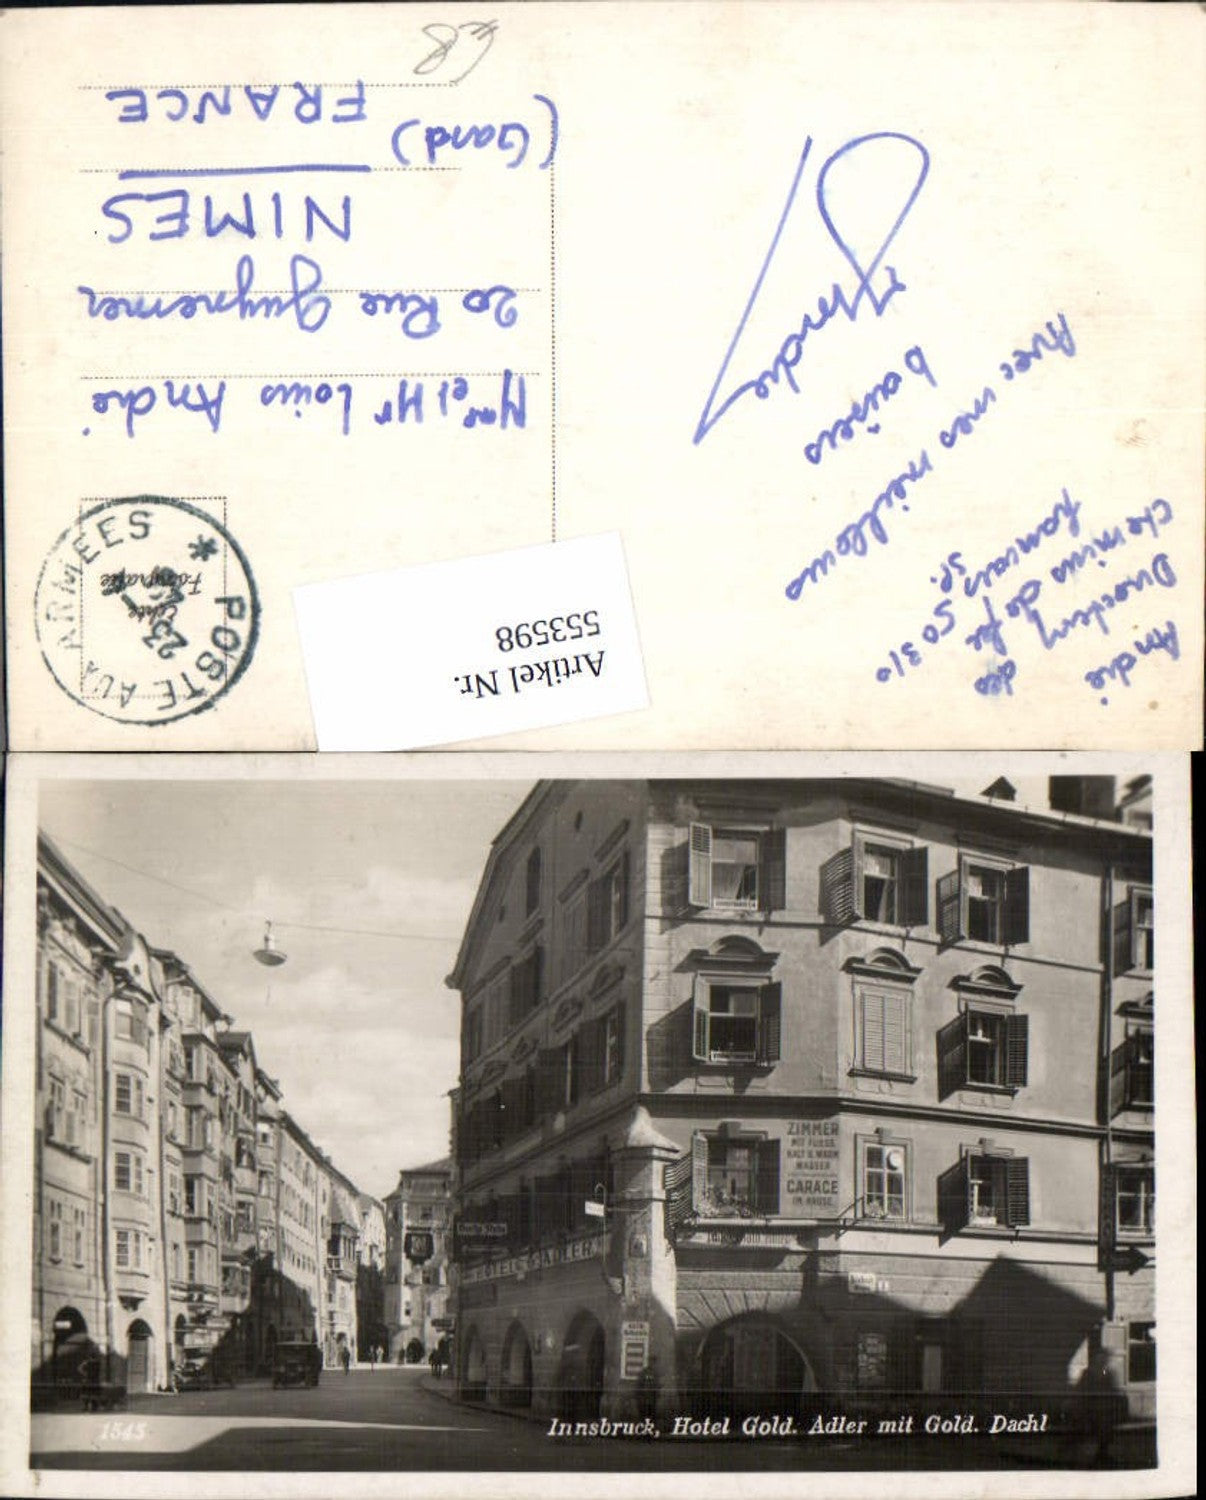 André
Directory des
chemins de fer
français SP. 50310
Avec mes meilleurs
baisers
André
Mme et Mr Louis André
20 Rue Guynemer
NIMES
(Gard)
FRANCE
POSTE AUX ARMEES *
23
Echte
Fotografie
Artikel Nr.
553598
ZIMMER
MIT FLIESS.
KALT U. WARM
WASSER
GARAGE
IM HAUSE
HOTEL G. ADLER
1543
Innsbruck, Hotel Gold. Adler mit Gold. Dachl